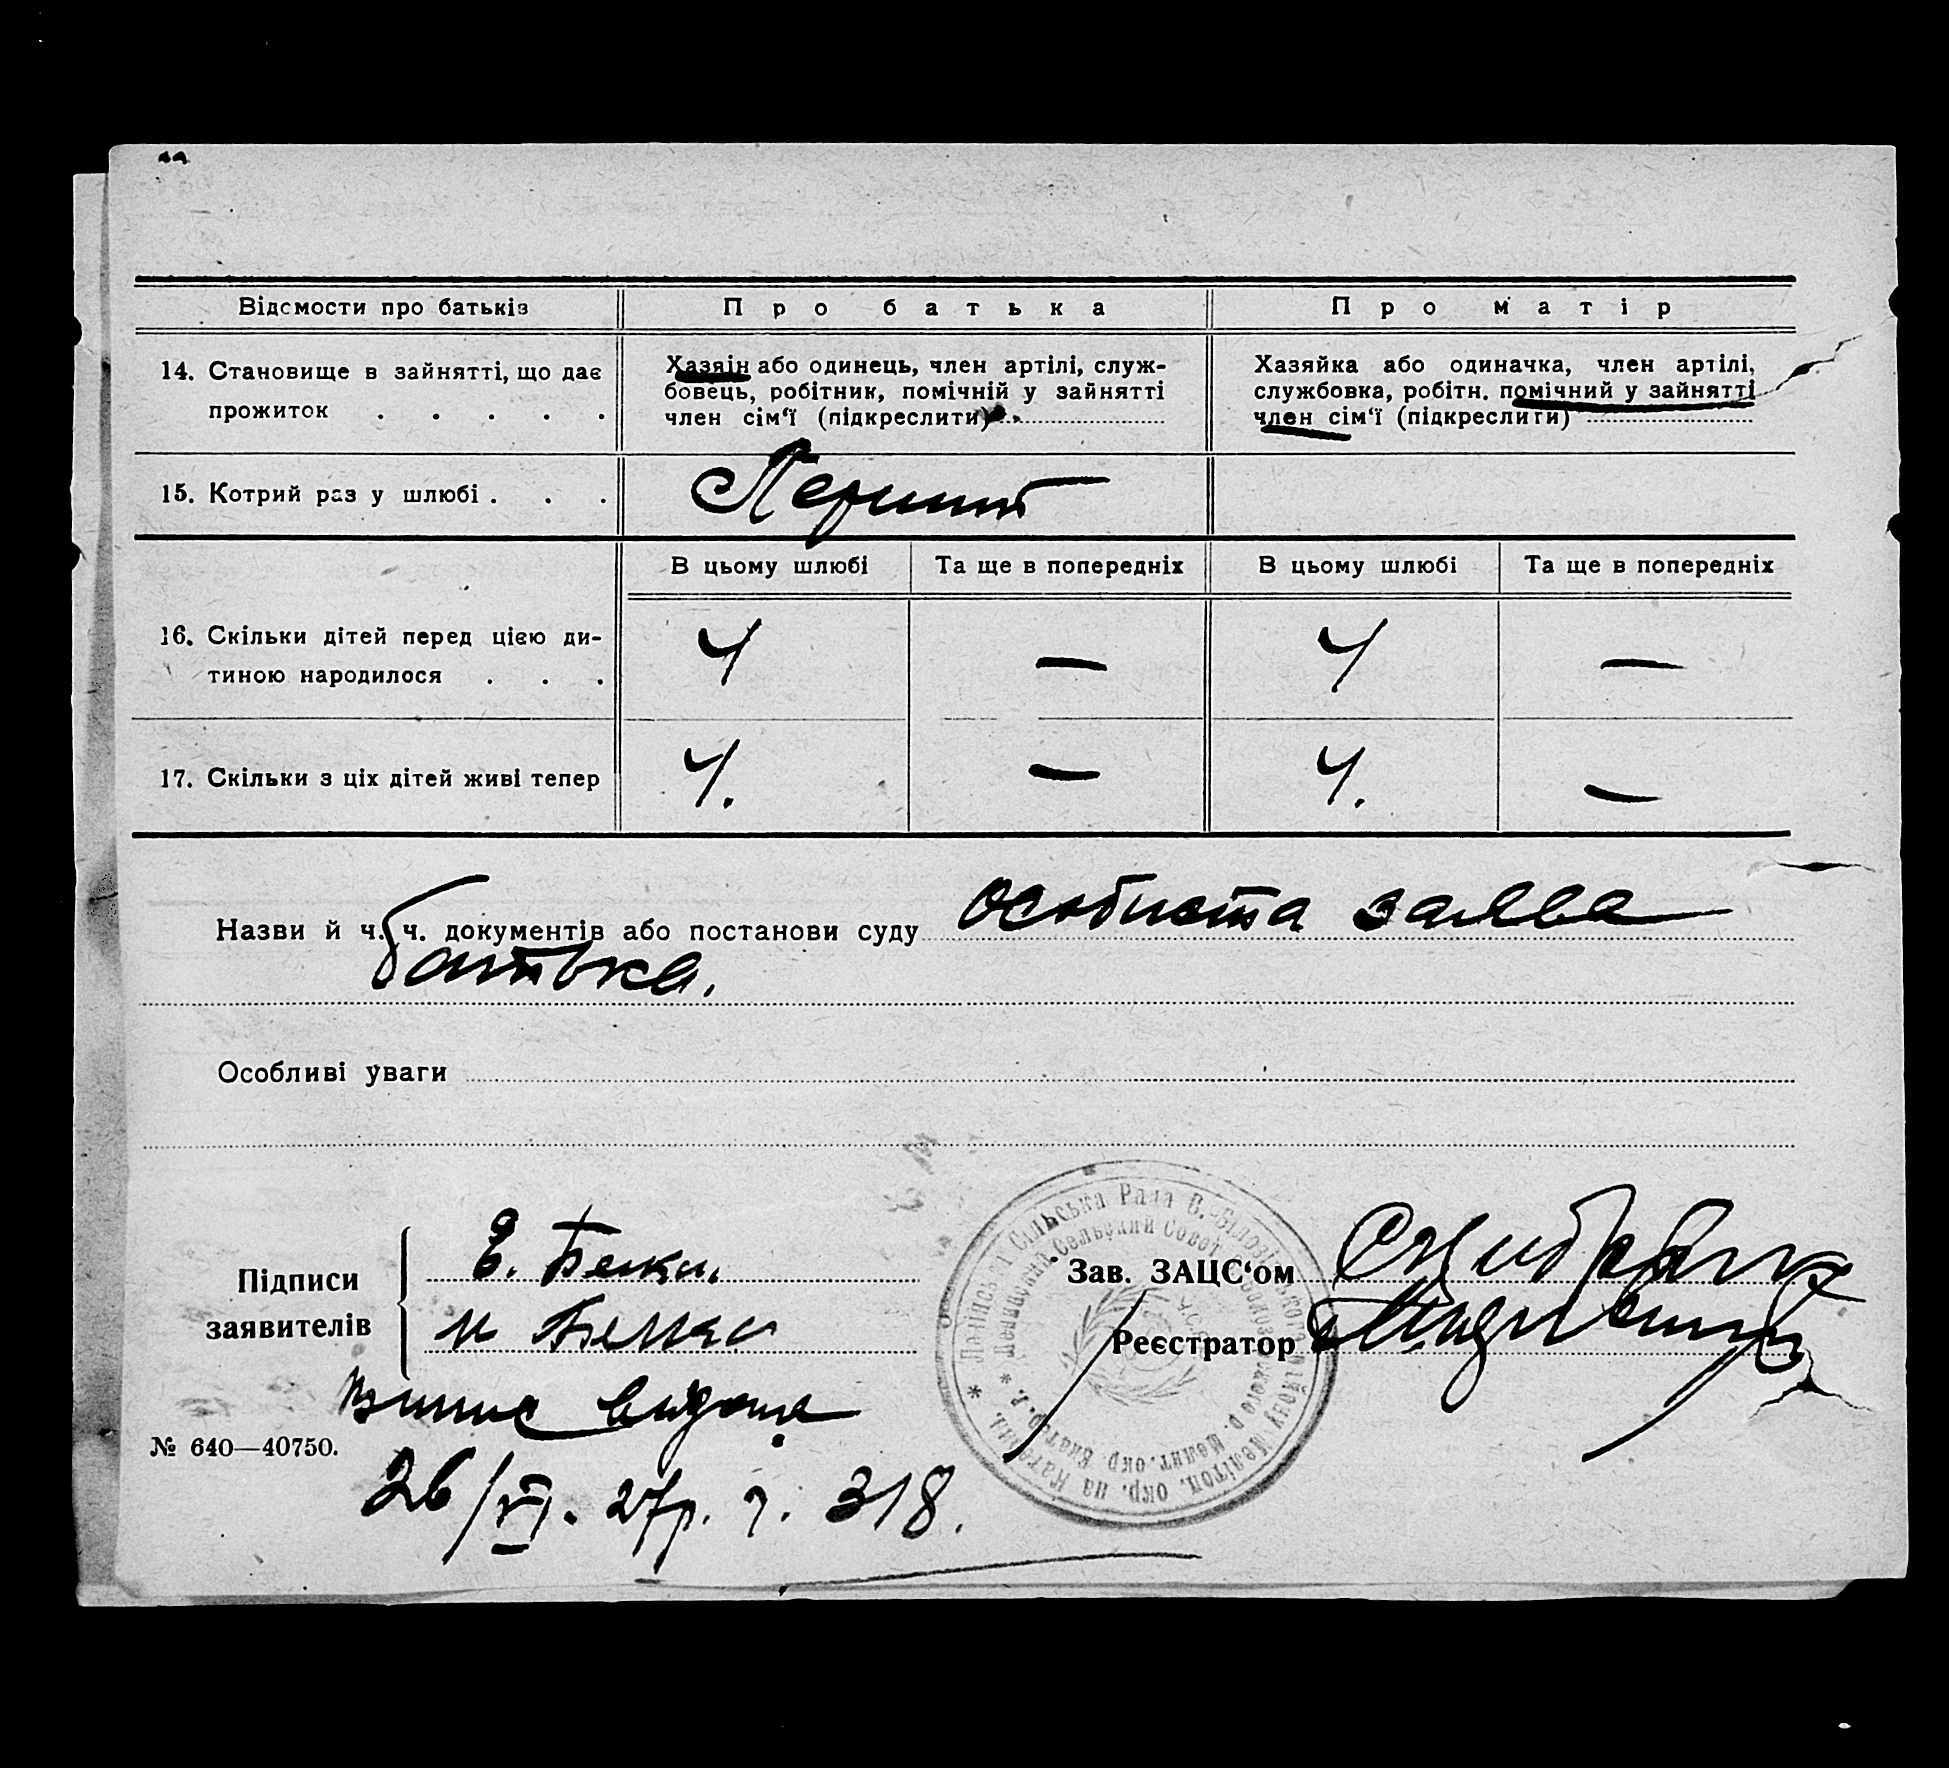 Відомости про батьків
Про батька
Про матір
14. Становище в зайнятті, що дає
прожиток . . . . .
Хазяїн або одинець, член артілі, служ-
бовець, робітник, помічній у зайнятті
член сім'ї (підкреслити)
Хазяйка або одиначка, член артілі,
службовка, робітн. помічний у зайнятті
член сім'ї (підкреслити)
15. Котрий раз у шлюбі . . .
Перший
В цьому шлюбі
Та ще в попередніх
В цьому шлюбі
Та ще в попередніх
16. Скільки дітей перед цією ди-
тиною народилося . . .
4 — 4 —
17. Скільки з ціх дітей живі тепер
4. — 4. —
Назви й ч. ч. документів або постанови суду особиста заява
батька.
Особливі уваги
Підписи
заявителів
Зав. ЗАЦС'ом
Реєстратор
Сільська Рада В.-Білозірського
Сельский Совет
випис видана
№ 640—40750.
26/VI. 27р. ч. 318.